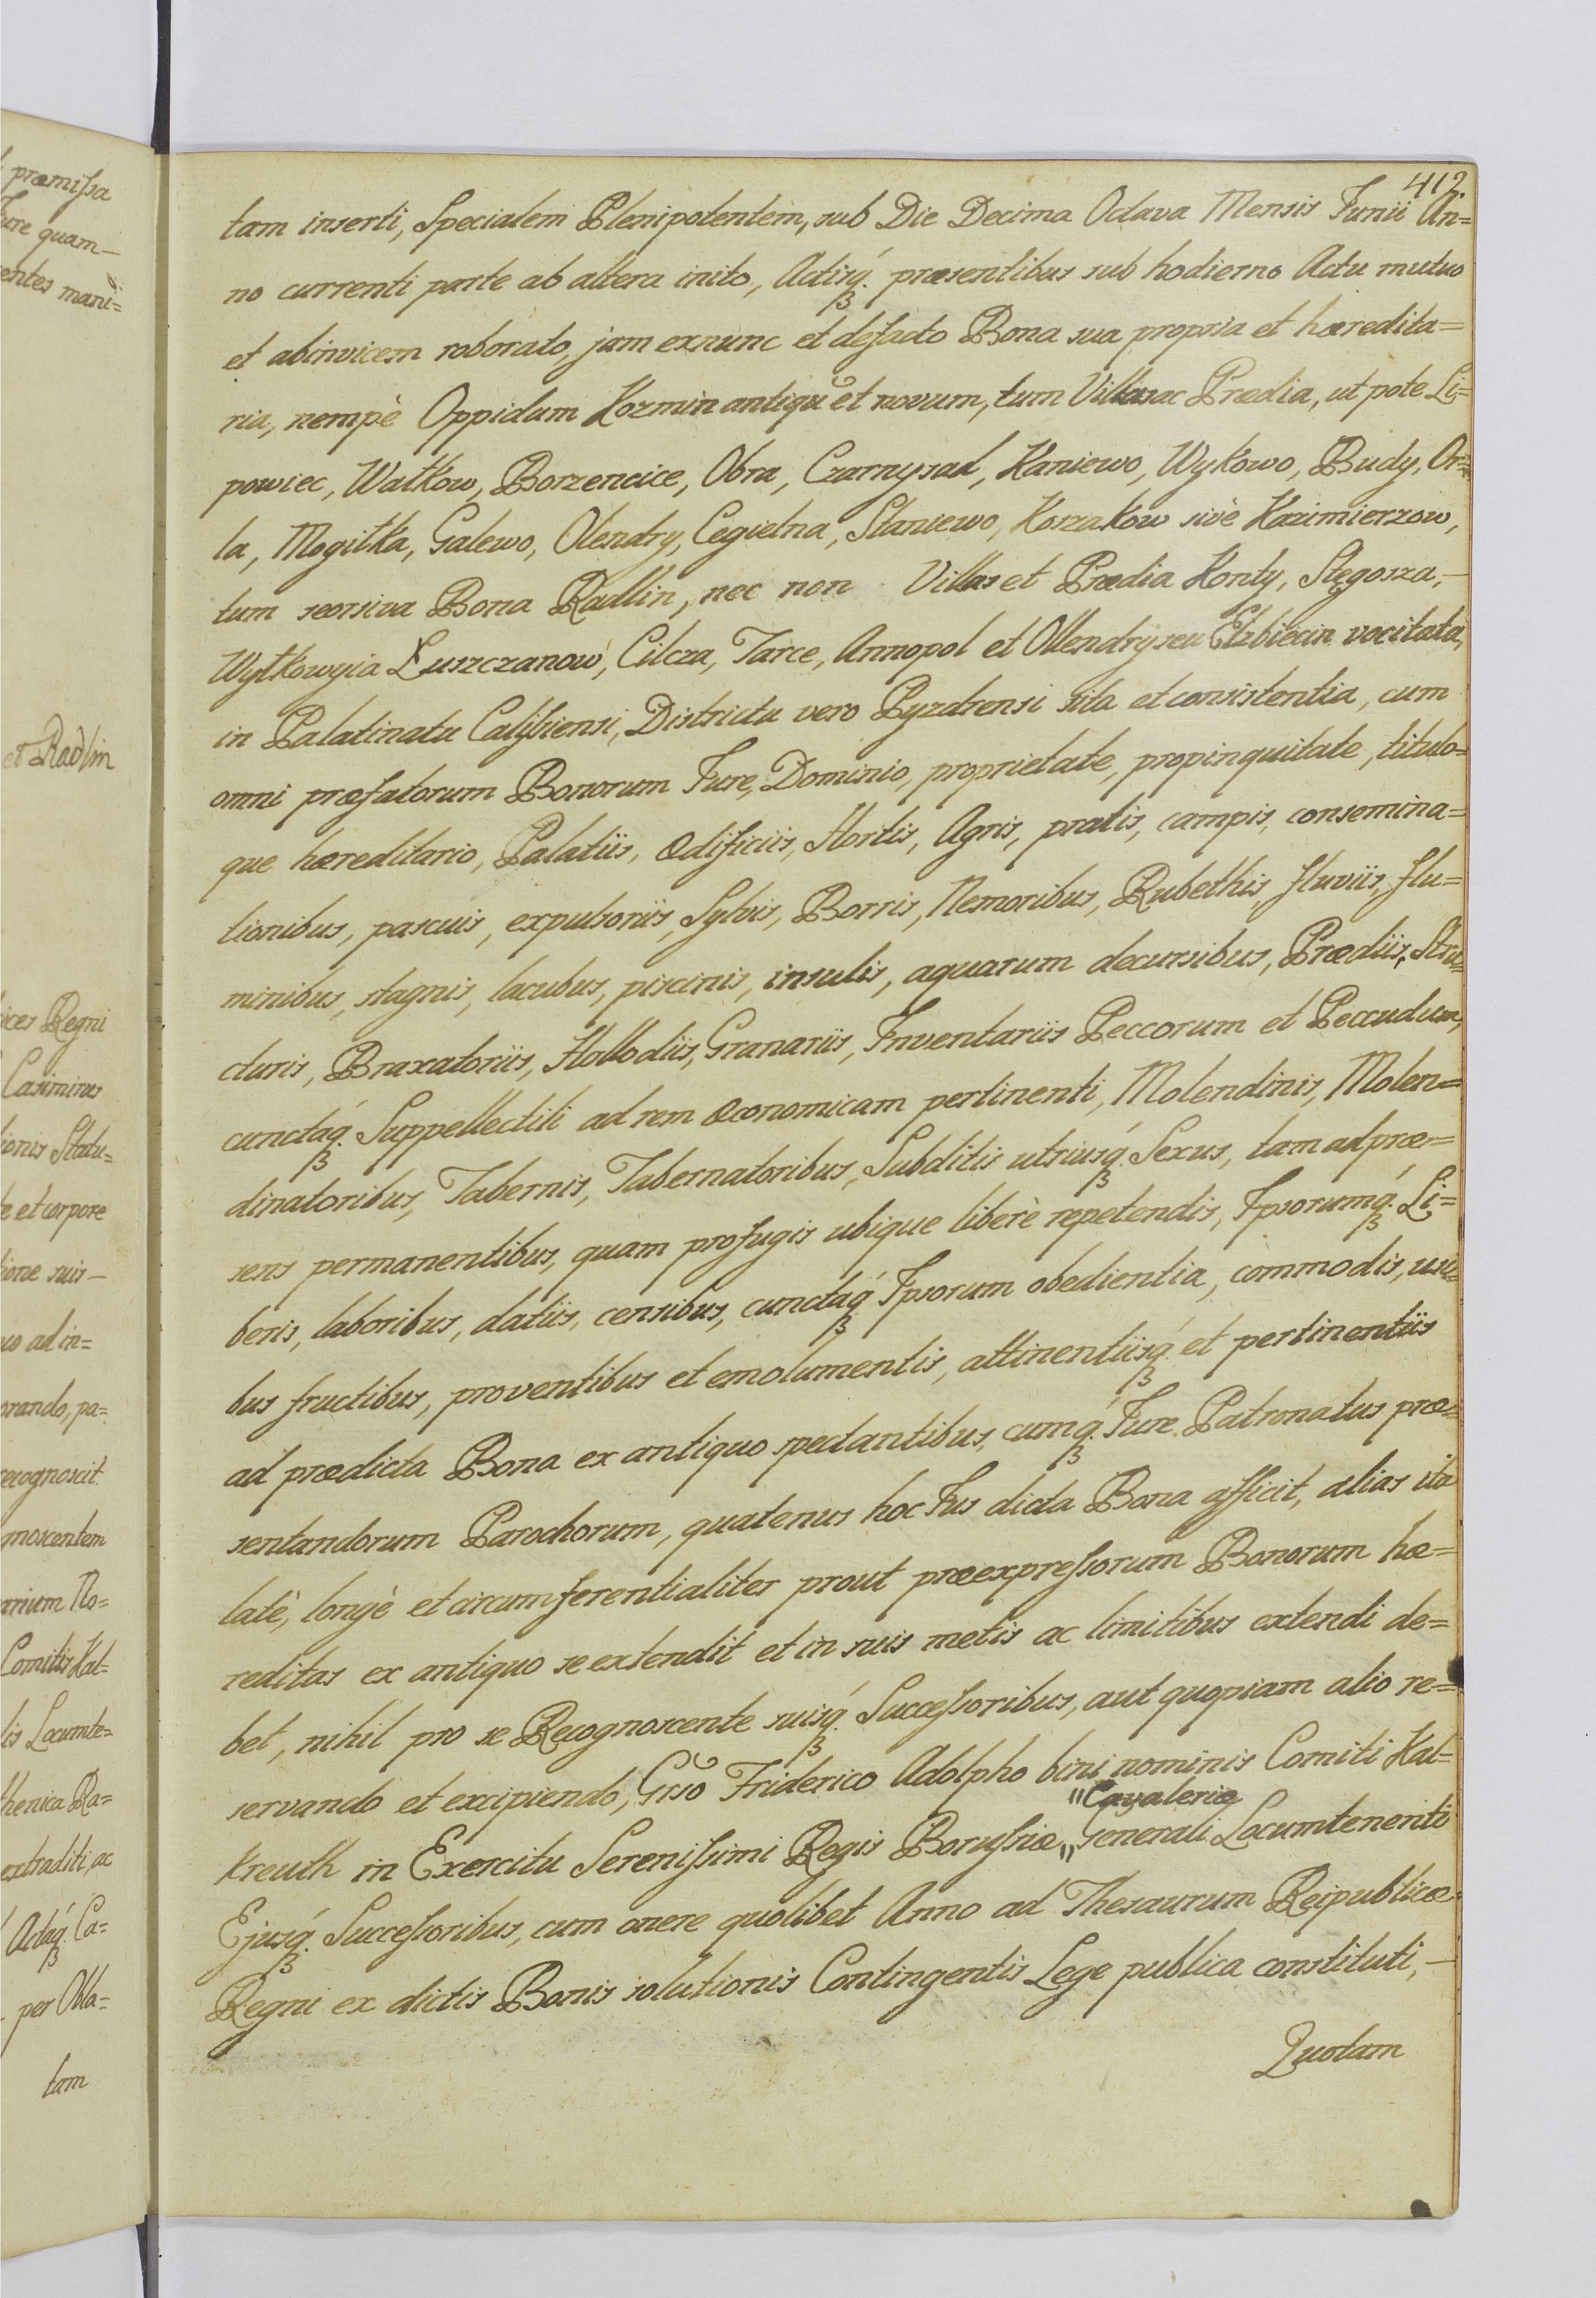 præmissa
Jure quam
entes mani=
et Radlin
ices Regni
Casimirus
ionis Statu=
te et corpore
tione suis
uo ad in=
orando, pa=
recognoscit
gnoscentem
arium No=
Comitis Kal=
lis Locumte=
thenica Ra=
extraditi, ac
Actaq́ꝫ Ca=
per Obla=
tam
412.
tam inserti, Specialem Plenipotentem, sub Die Decima Octava Mensis Junii An=
no currenti parte ab altera inito, Actisq́ꝫ præsentibus sub hodierno Actu mutuo
et abinvicem roborato, jam exnunc et defacto Bona sua propria et hæredita=
ria, nempè Oppidum Kozmin antiquū et novum, tum Villas ac Prædia, ut pote Li=
powiec, Wałkow, Borzencice, Obra, Czarnysad, Kaniewo, Wykowo, Budy, Or=
la, Mogiłka, Galewo, Olendry, Cegielna, Staniewo, Korzakow sivè Kazimierzow,
tum seorsiva Bona Radlin, nec non Villas et Prædia Konty, Stęgosza,
Wyłkowyia Łuszczanow, Cilcza, Tarce, Annopol et Ollendry seu Elzbiecin vocitata,
in Palatinatu Calissiensi, Districtu vero Pyzdrensi sita et consistentia, cum
omni præfatorum Bonorum Jure, Dominio, proprietate, propinquitate, titulo=
que hæreditario, Palatiis, Ædificiis, Hortis, Agris, pratis, campis, consemina=
tionibus, pascuis, expulsoriis, Sylvis, Borris, Nemoribus, Rubethis, fluviis, flu=
minibus, stagnis, lacubus, piscinis, insulis, aquarum decursibus, Prædiis, Stru=
cturis, Braxatoriis, Hollodiis, Granariis, Inventariis Peccorum et Peccudum,
cunctaq́ꝫ Suppellectili ad rem œconomicam pertinenti, Molendinis, Molen=
dinatoribus, Tabernis, Tabernatoribus, Subditis utriusq́ꝫ Sexus, tam ad præ=
sens permanentibus, quam profugis ubique liberè repetendis, Ipsorumq́ꝫ Li=
beris, laboribus, datiis, censibus, cunctaq́ꝫ Ipsorum obedientia, commodis, usi=
bus fructibus, proventibus et emolumentis, attinentiisq́ꝫ et pertinentiis
ad prædicta Bona ex antiquo spectantibus, cumq́ꝫ Jure Patronatus præ=
sentandorum Parochorum, quatenus hoc Jus dicta Bona afficit, alias ita
latè, longè et circumferentialiter prout præexpressorum Bonorum hæ=
reditas ex antiquo se extendit et in suis metis ac limitibus extendi de=
bet, nihil pro se Recognoscente suisq́ꝫ Successoribus, aut quopiam alio re=
servando et excipiendo, Grso Friderico Adolpho bini nominis Comiti Kal=
"Cavaleriæ
kreuth in Exercitu Serenissimi Regis Borussiæ " Generali Locumtenenti
Ejusq́ꝫ Successoribus, cum onere quolibet Anno ad Thesaurum Reipublicæ
Regni ex dictis Bonis solutionis Contingentis Lege publica constituti,
Quotam